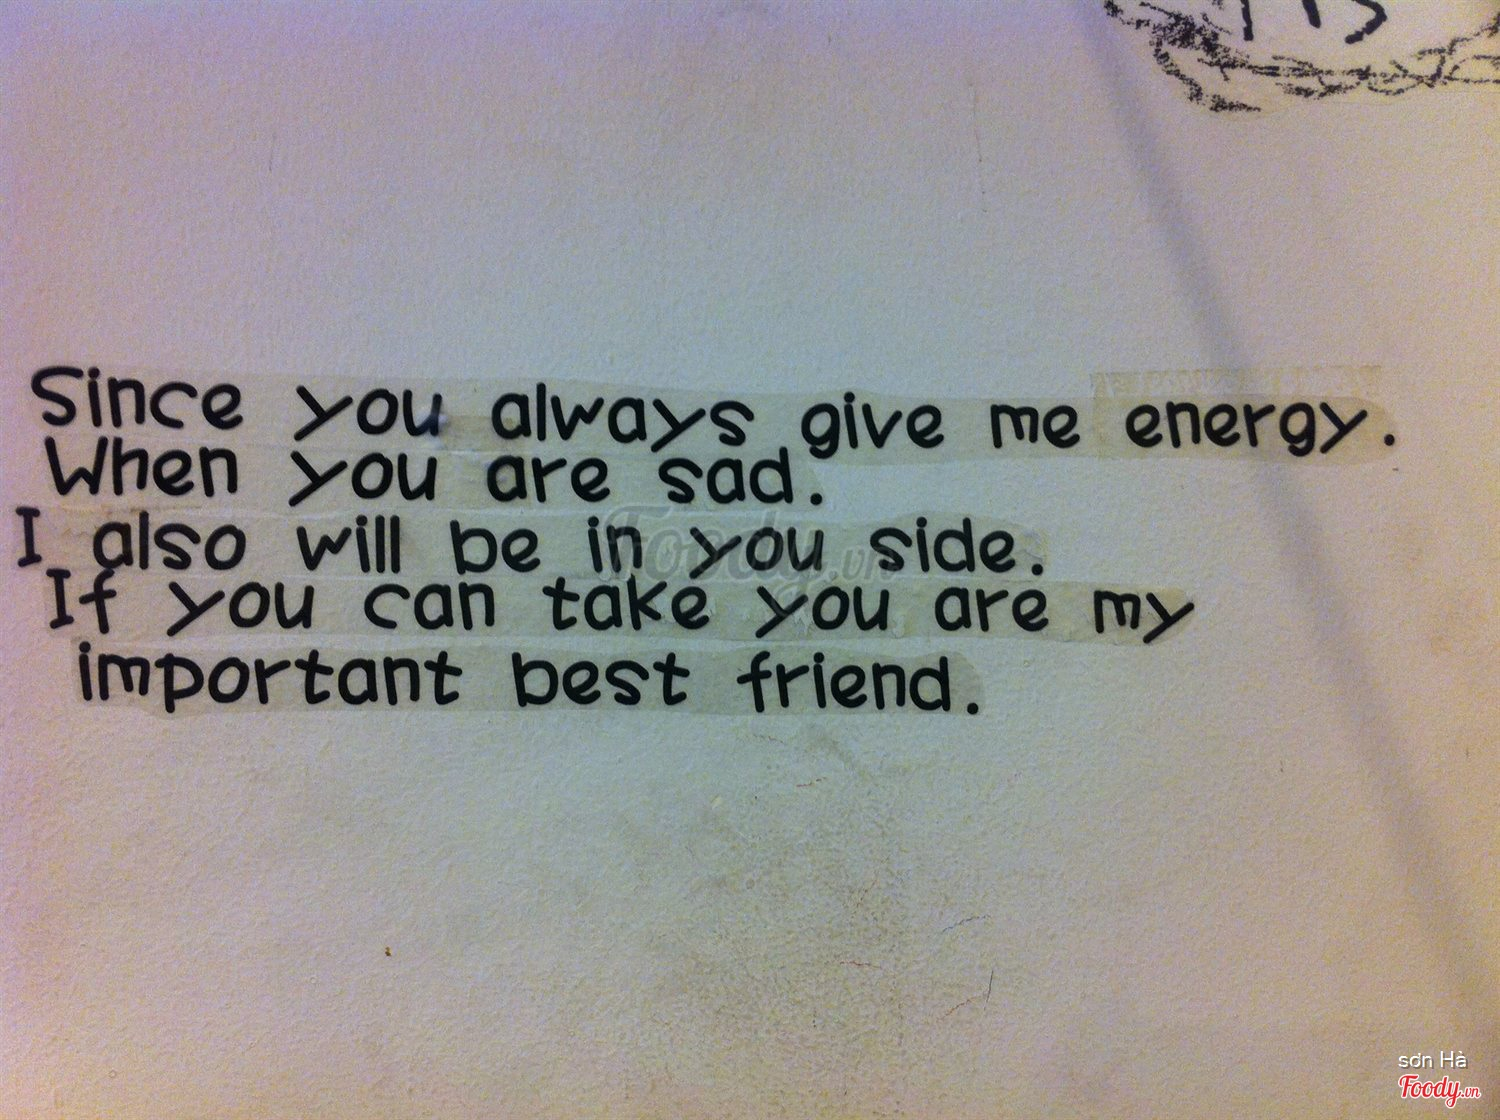 Since you always give me energy.
When you are sad.
I also will be in you side.
If you can take you are my
important best friend.
Foody.vn
sơn Hà
Foody.vn